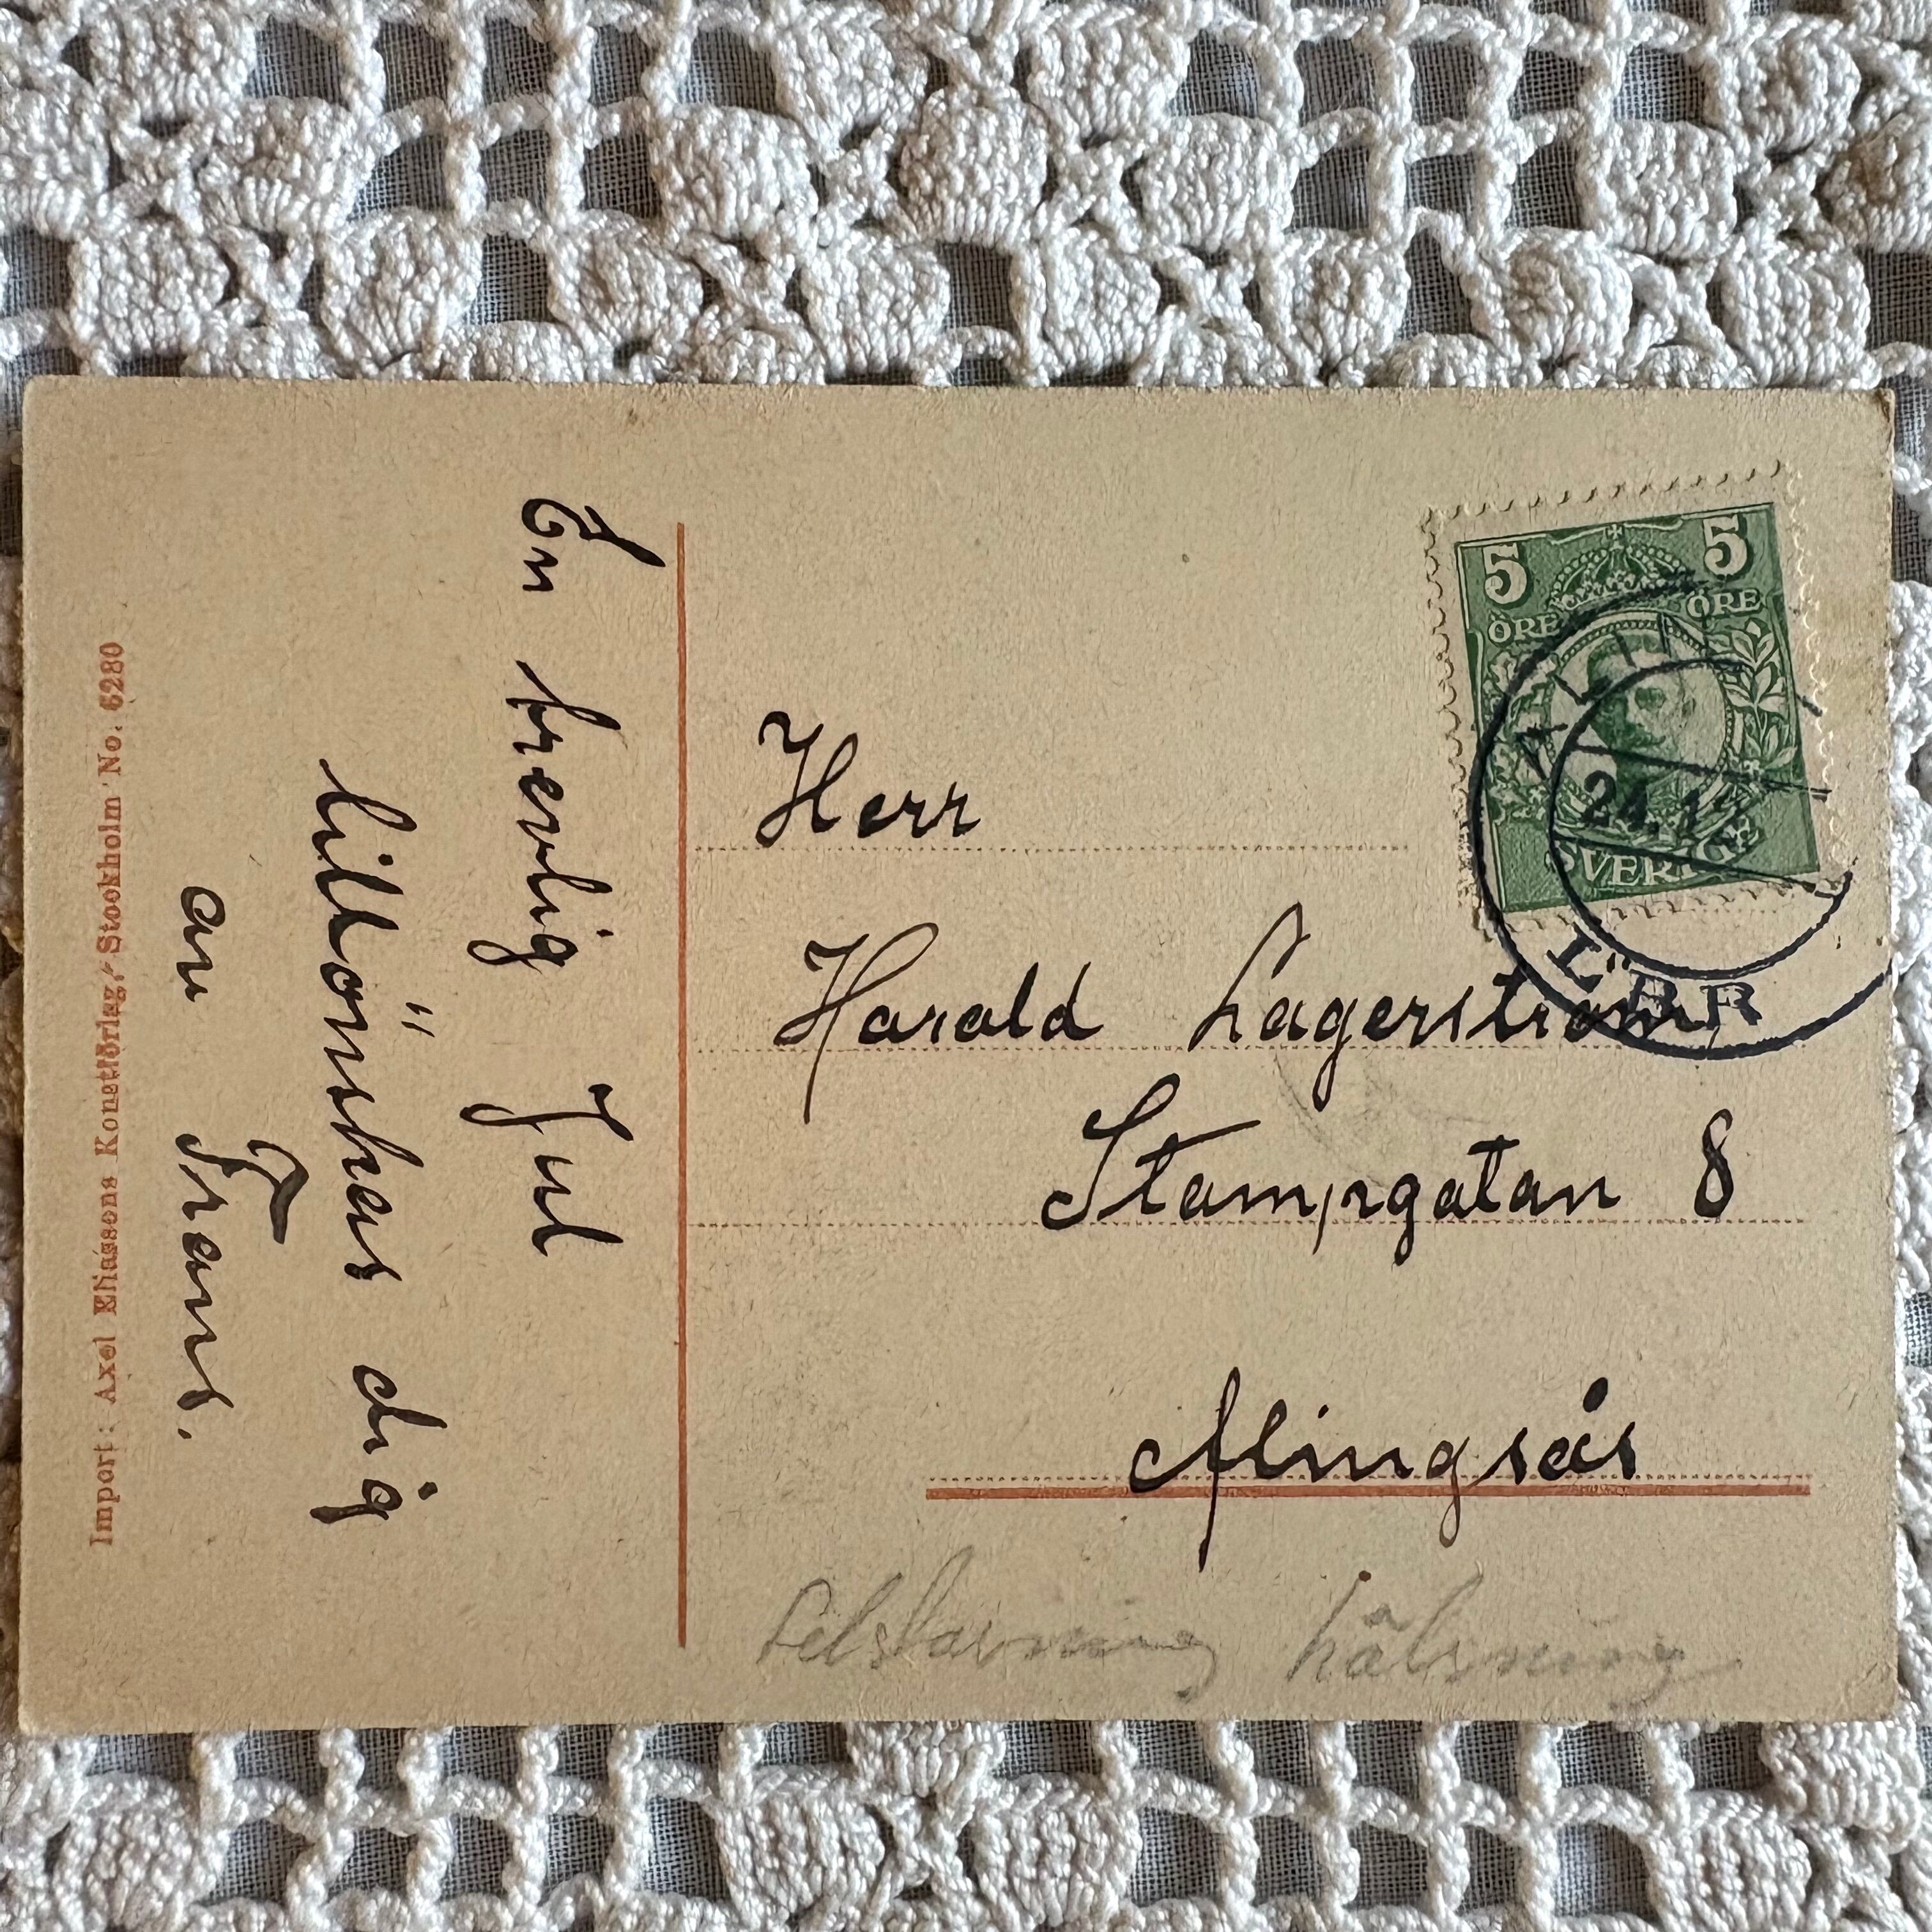 En trevlig Jul
tillönskas dig
av Frans.
Import: Axel Eliassons Konstförlag, Stockholm No. 6280
5 5
ÖRE ÖRE
SVERIGE
24.12
Herr
Harald Lagerström
Stampgatan 8
Alingsås
felstavning hälsning